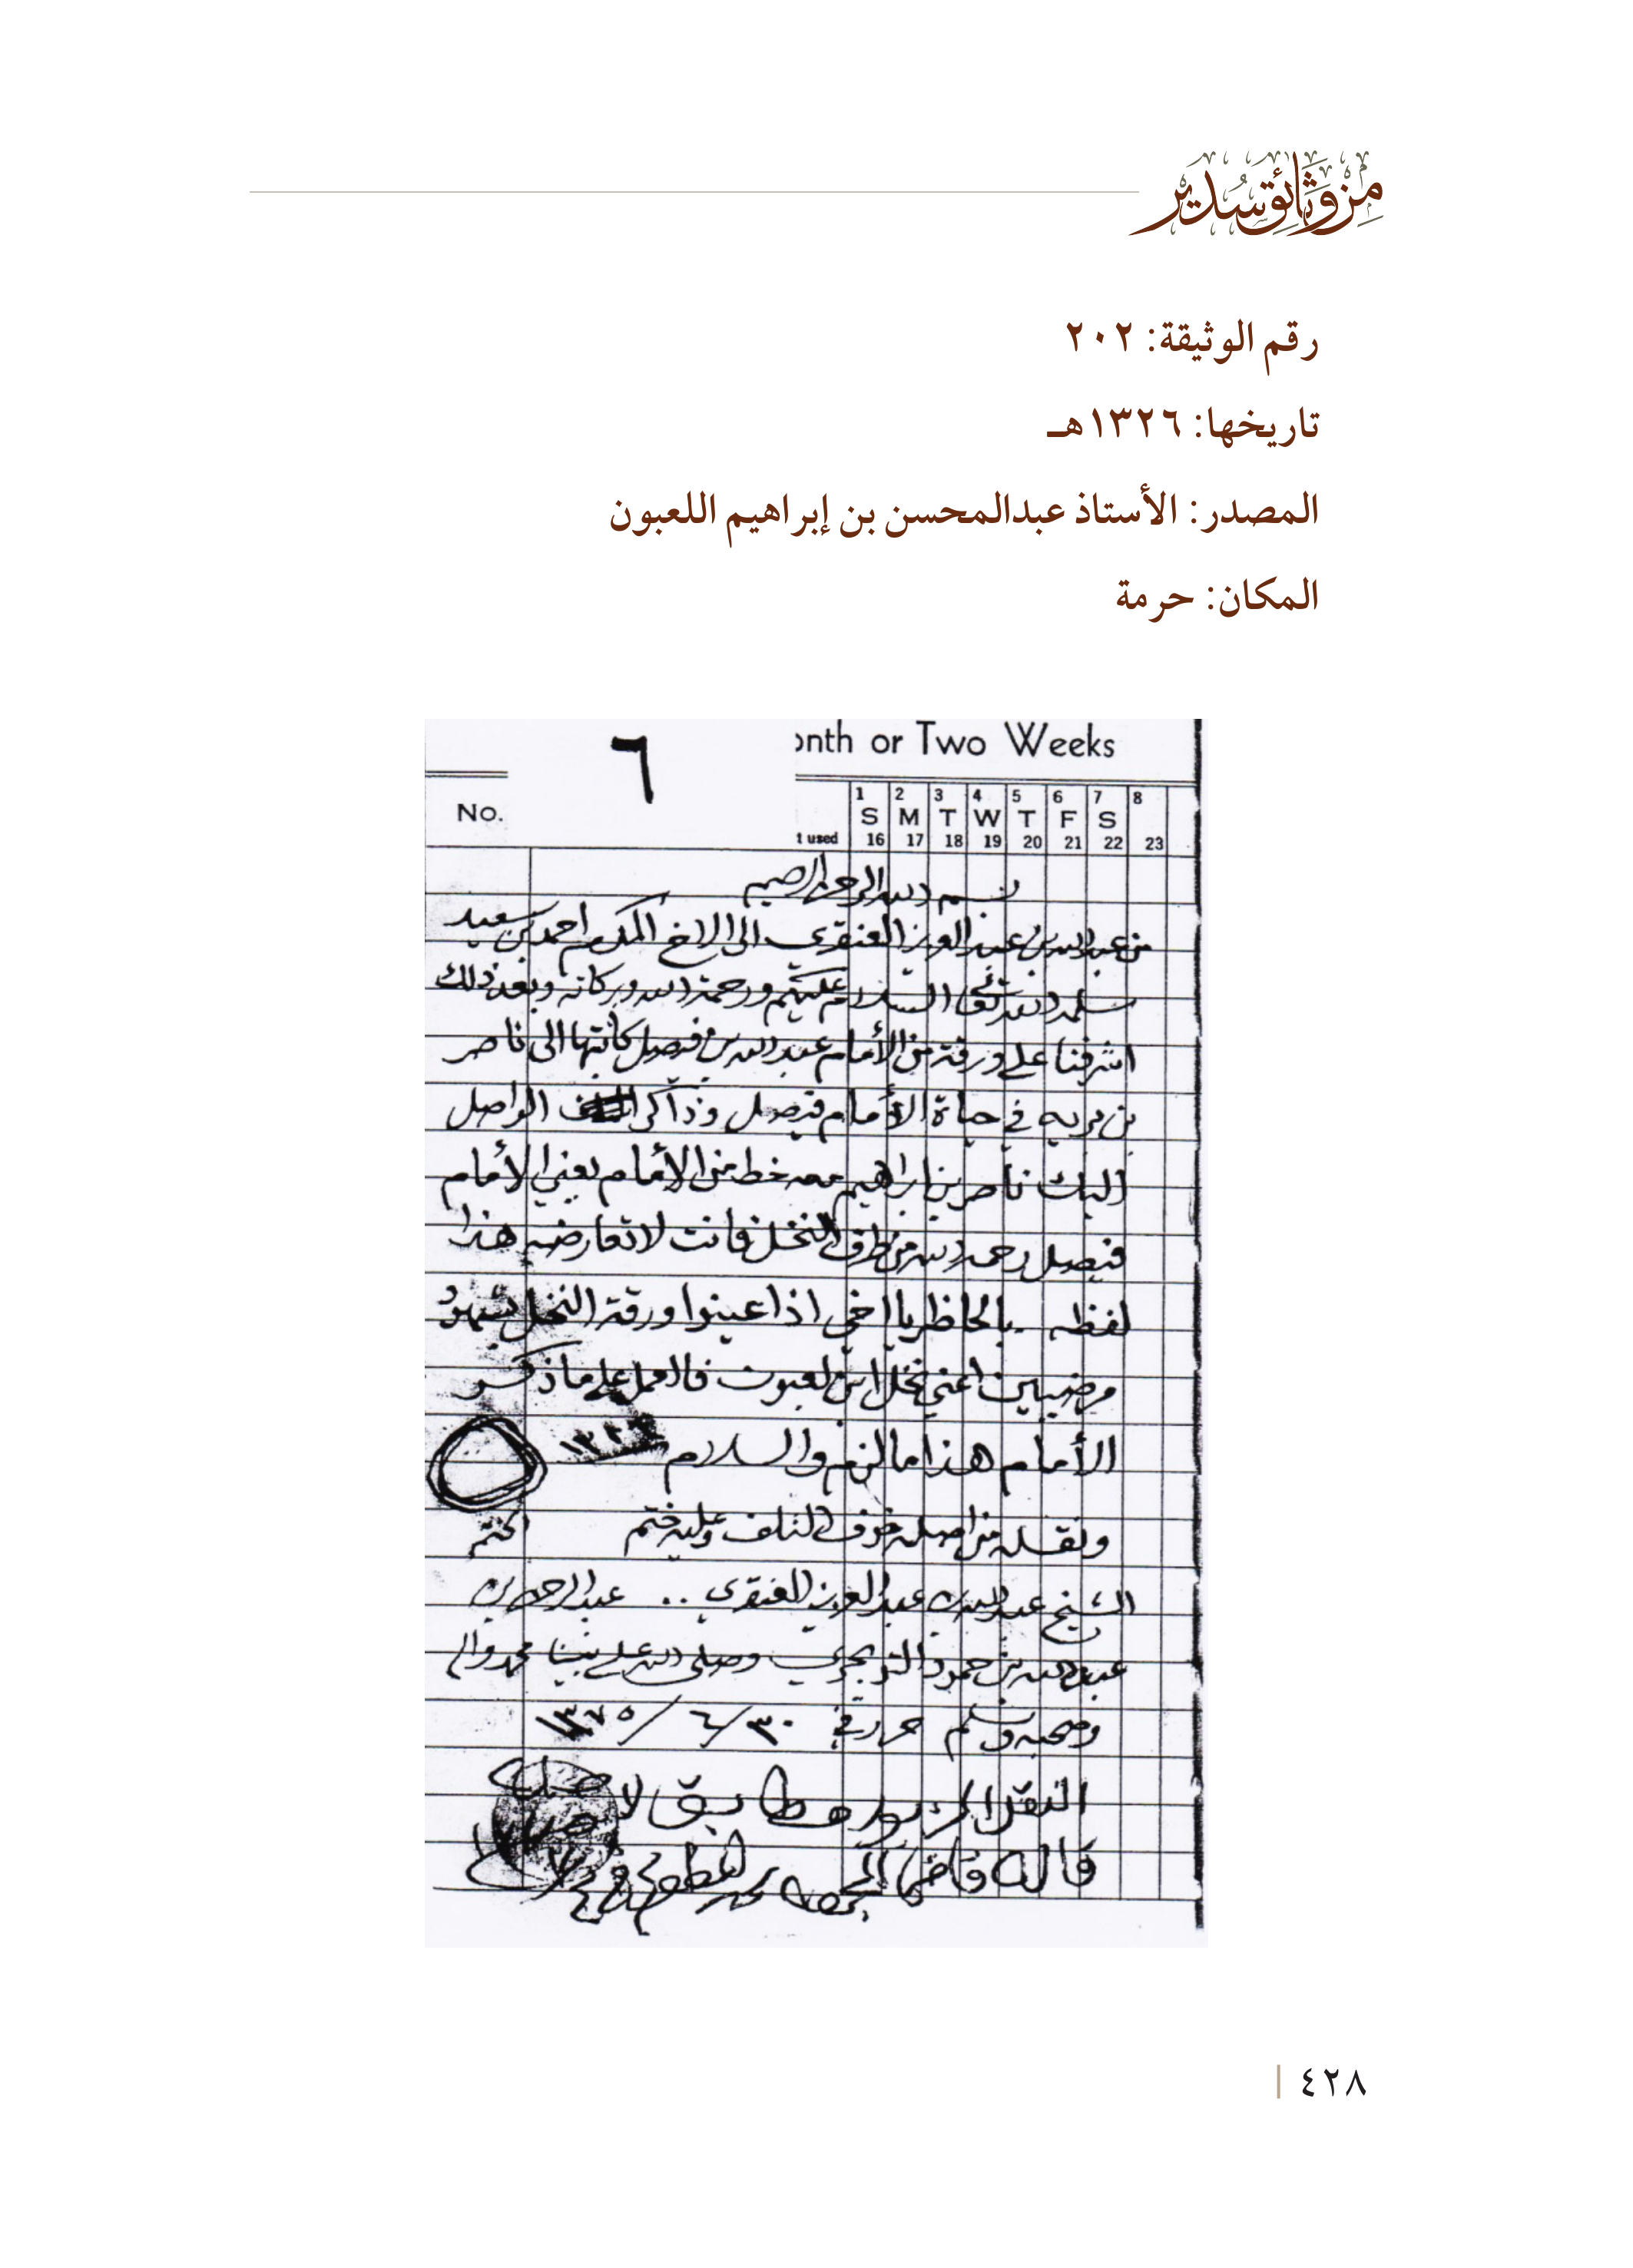 من وثائق سدير
رقم الوثيقة: ٢٠٢
تاريخها: ١٣٢٦هـ
المصدر: الأستاذ عبدالمحسن بن إبراهيم اللعبون
المكان: حرمة
onth or Two Weeks
٦
No.
t used
1 2 3 4 5 6 7 8
S M T W T F S
16 17 18 19 20 21 22 23
بسم الله الرحمن الرحيم
من عبدالله بن عبد العزيز العنقري الى الاخ المكرم احمد بن سعيد
سلمه الله تعالى السلام عليكم ورحمة الله وبركاته وبعد ذلك
اشرفنا على ورقة من الأمام عبد الله بن فيصل كاتبها الى ناصر
بن في حياة الأمام فيصل وذاكر الواصل
اليك ناصر بن ابراهيم معه خط من الأمام يعني الأمام
فيصل رحمه الله من طرف النخل فانت لا تعارضه هذا
لفظه بالحاظر يا اخي اذا عينوا ورقة النخل شهود
مرضيين اعني نخل ابن لعبون فالعمل على ما ذكر
الأمام هذا ما لزم والسلام ١٣٢٦
ونقله من اصله خوف التلف وعليه ختم
الشيخ عبدالله بن عبد العزيز العنقري .. عبدالرحمن بن
عبدالله بن حمود التويجري وصلى الله على نبينا محمد واله
وصحبه وسلم حرر في ٣٠ / ٦ / ١٣٧٥
النقل المزبور مطابق لاصله
قاله قاضي المجمعة
٤٢٨